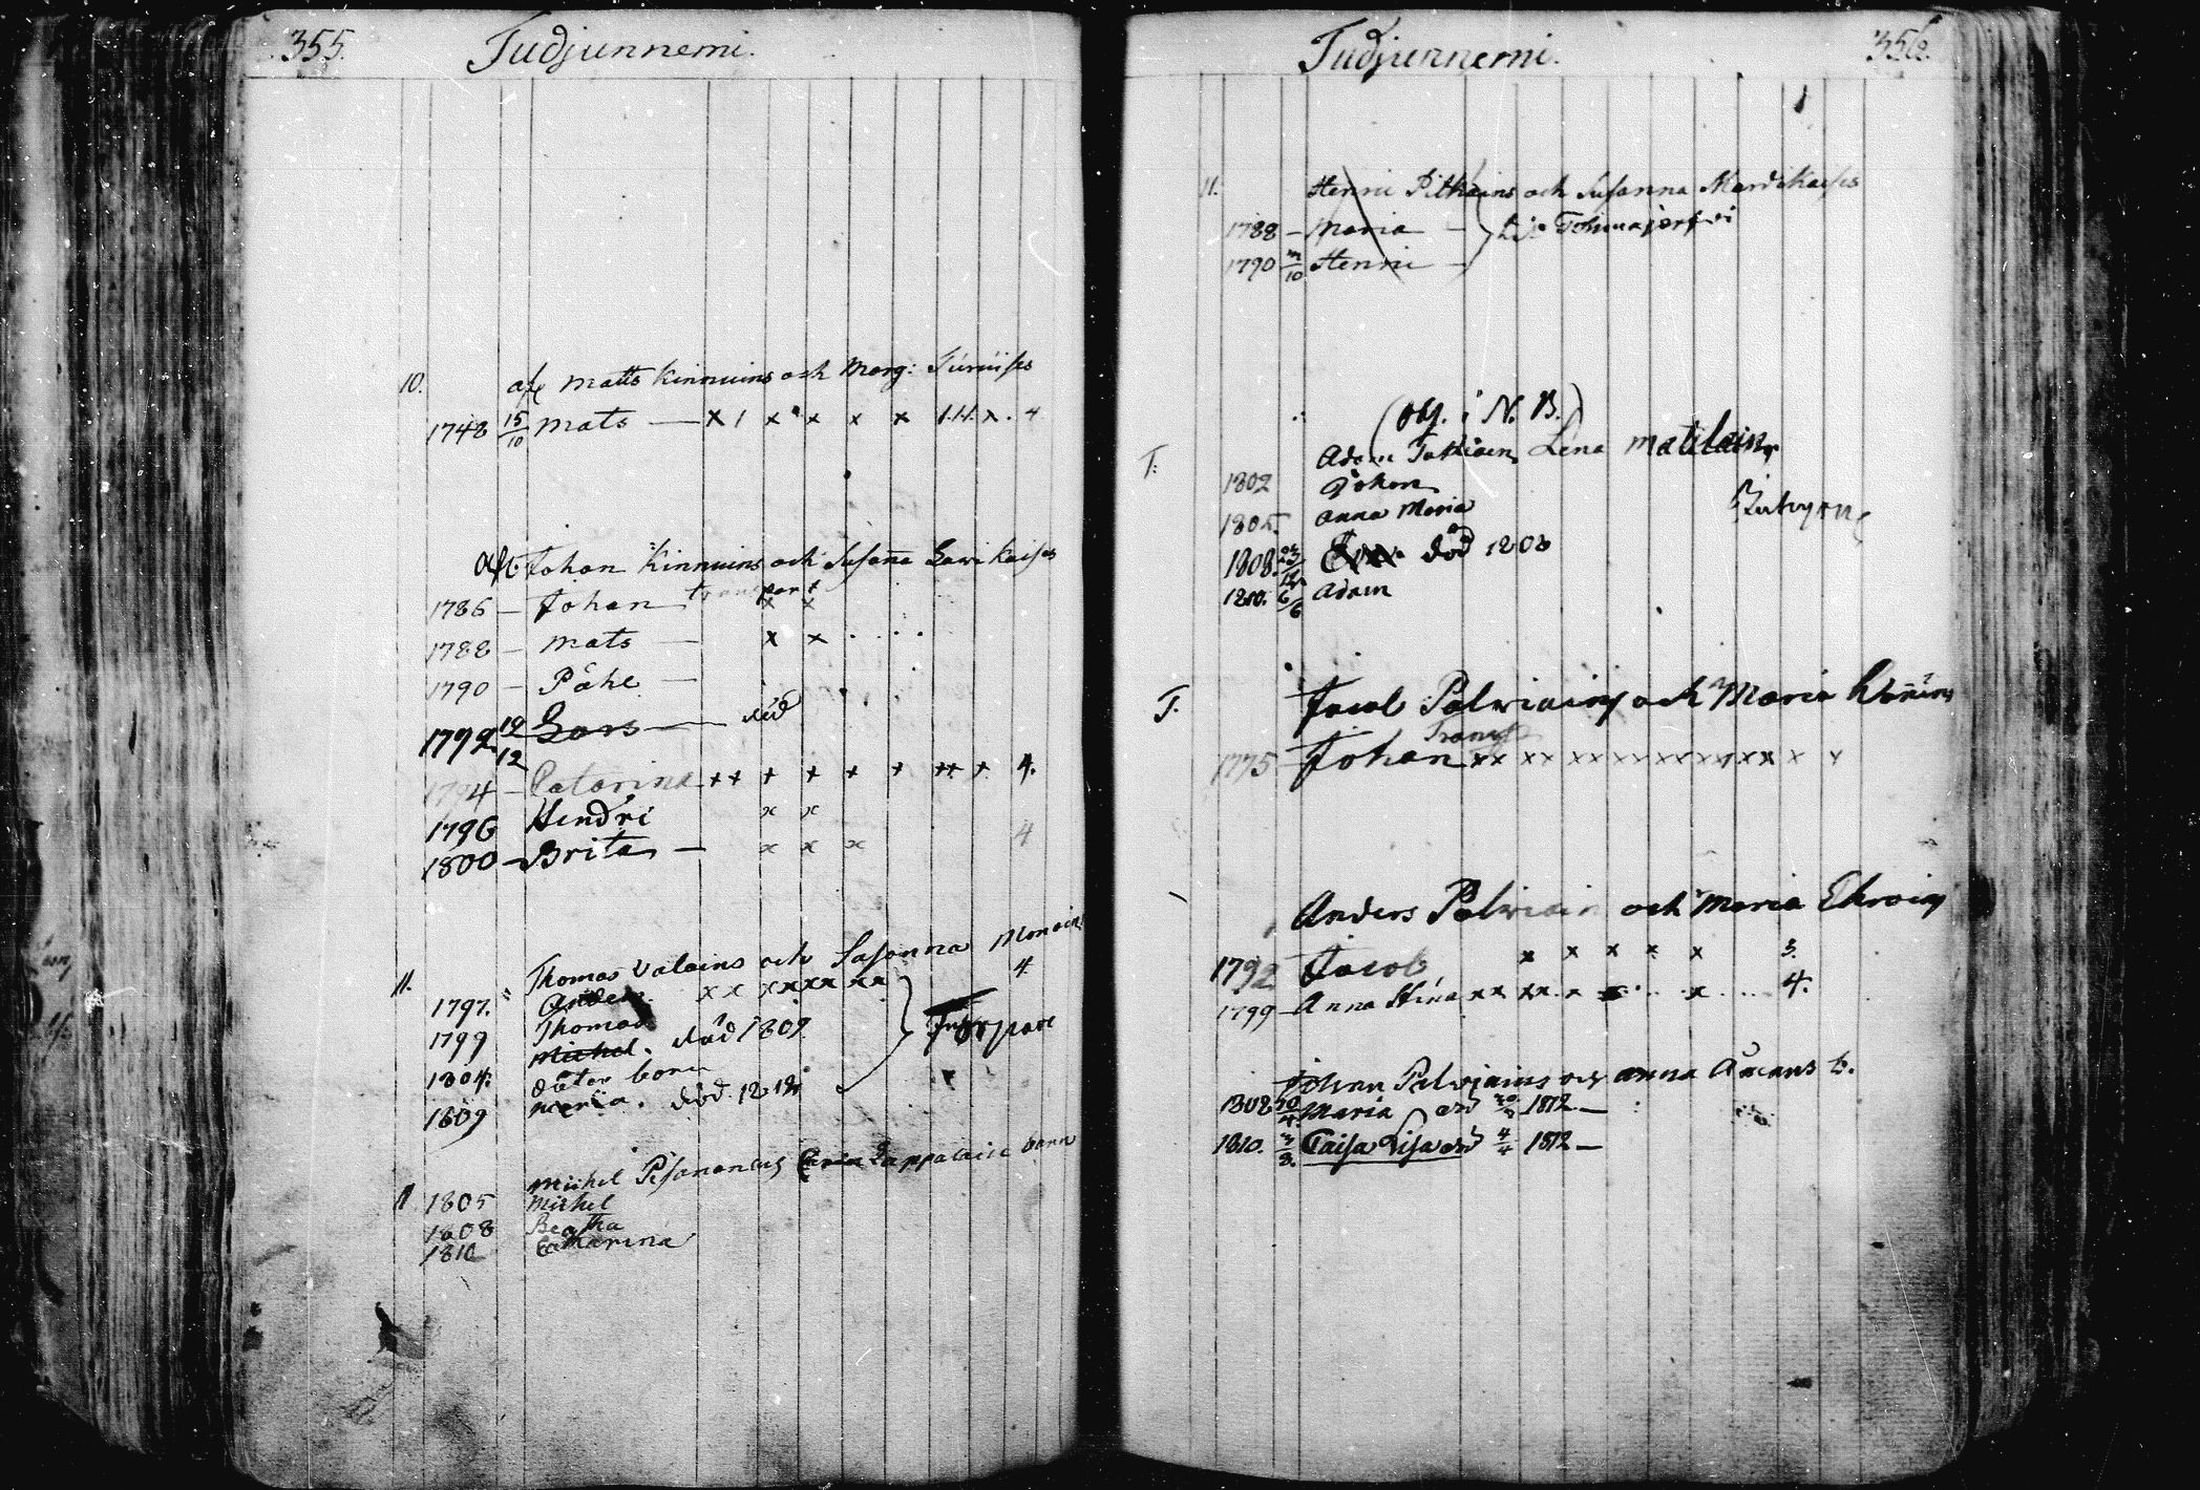 355. Tudjunnemi.
10. afl Matts Kinnuins och Marg:
1748 15/10 Mats — x 1 x x x x 1.1.1. x. 4
afl. Johan Kinnuins och Susana
1786 — Johan transport x x
1788 — Mats — x x . . . .
1790 — Påhl —
1792 19/12 Lars — död
1794 — Catarina x x x x x x x x x 4.
1796 Hendri x x
1800 — Brita — x x x 4
11. Thomas Valains och Susanna Monoin
1797. Anders. x x x x x x x x 4
1799 Thomas
1804. Michel. död 1809 Torpare
dåter born
1809 Maria. död
Michel Pesonencus Lappalaise barn
11 1805 Michel
1808 Beatha
1810 Catharina
Tudjunnemi. 356.
11. Henric Pitkäins och Susanna
1788 — Maria — Tohmajerfvi
1790 m/10 Henric —
(obs. i N. B.)
T: Adam Lena Matilain
1802 Johan
1805. Anna Maria
1808. död 1808
1810. 6/6 Adam
T. Jacob Palviains och Maria
Transp
1775 Johan x x x x x x x x x x x x x x x
Anders Palviain och Maria Ekroin
1792 Jacob x x x x x 3.
1799 — Anna Stina x x x x . x . . x . . . 4.
Johan Palviains och Anna b.
1808 Maria död 1812 —
1810. 3/8. Caisa Lisa död 4/4 1812 —